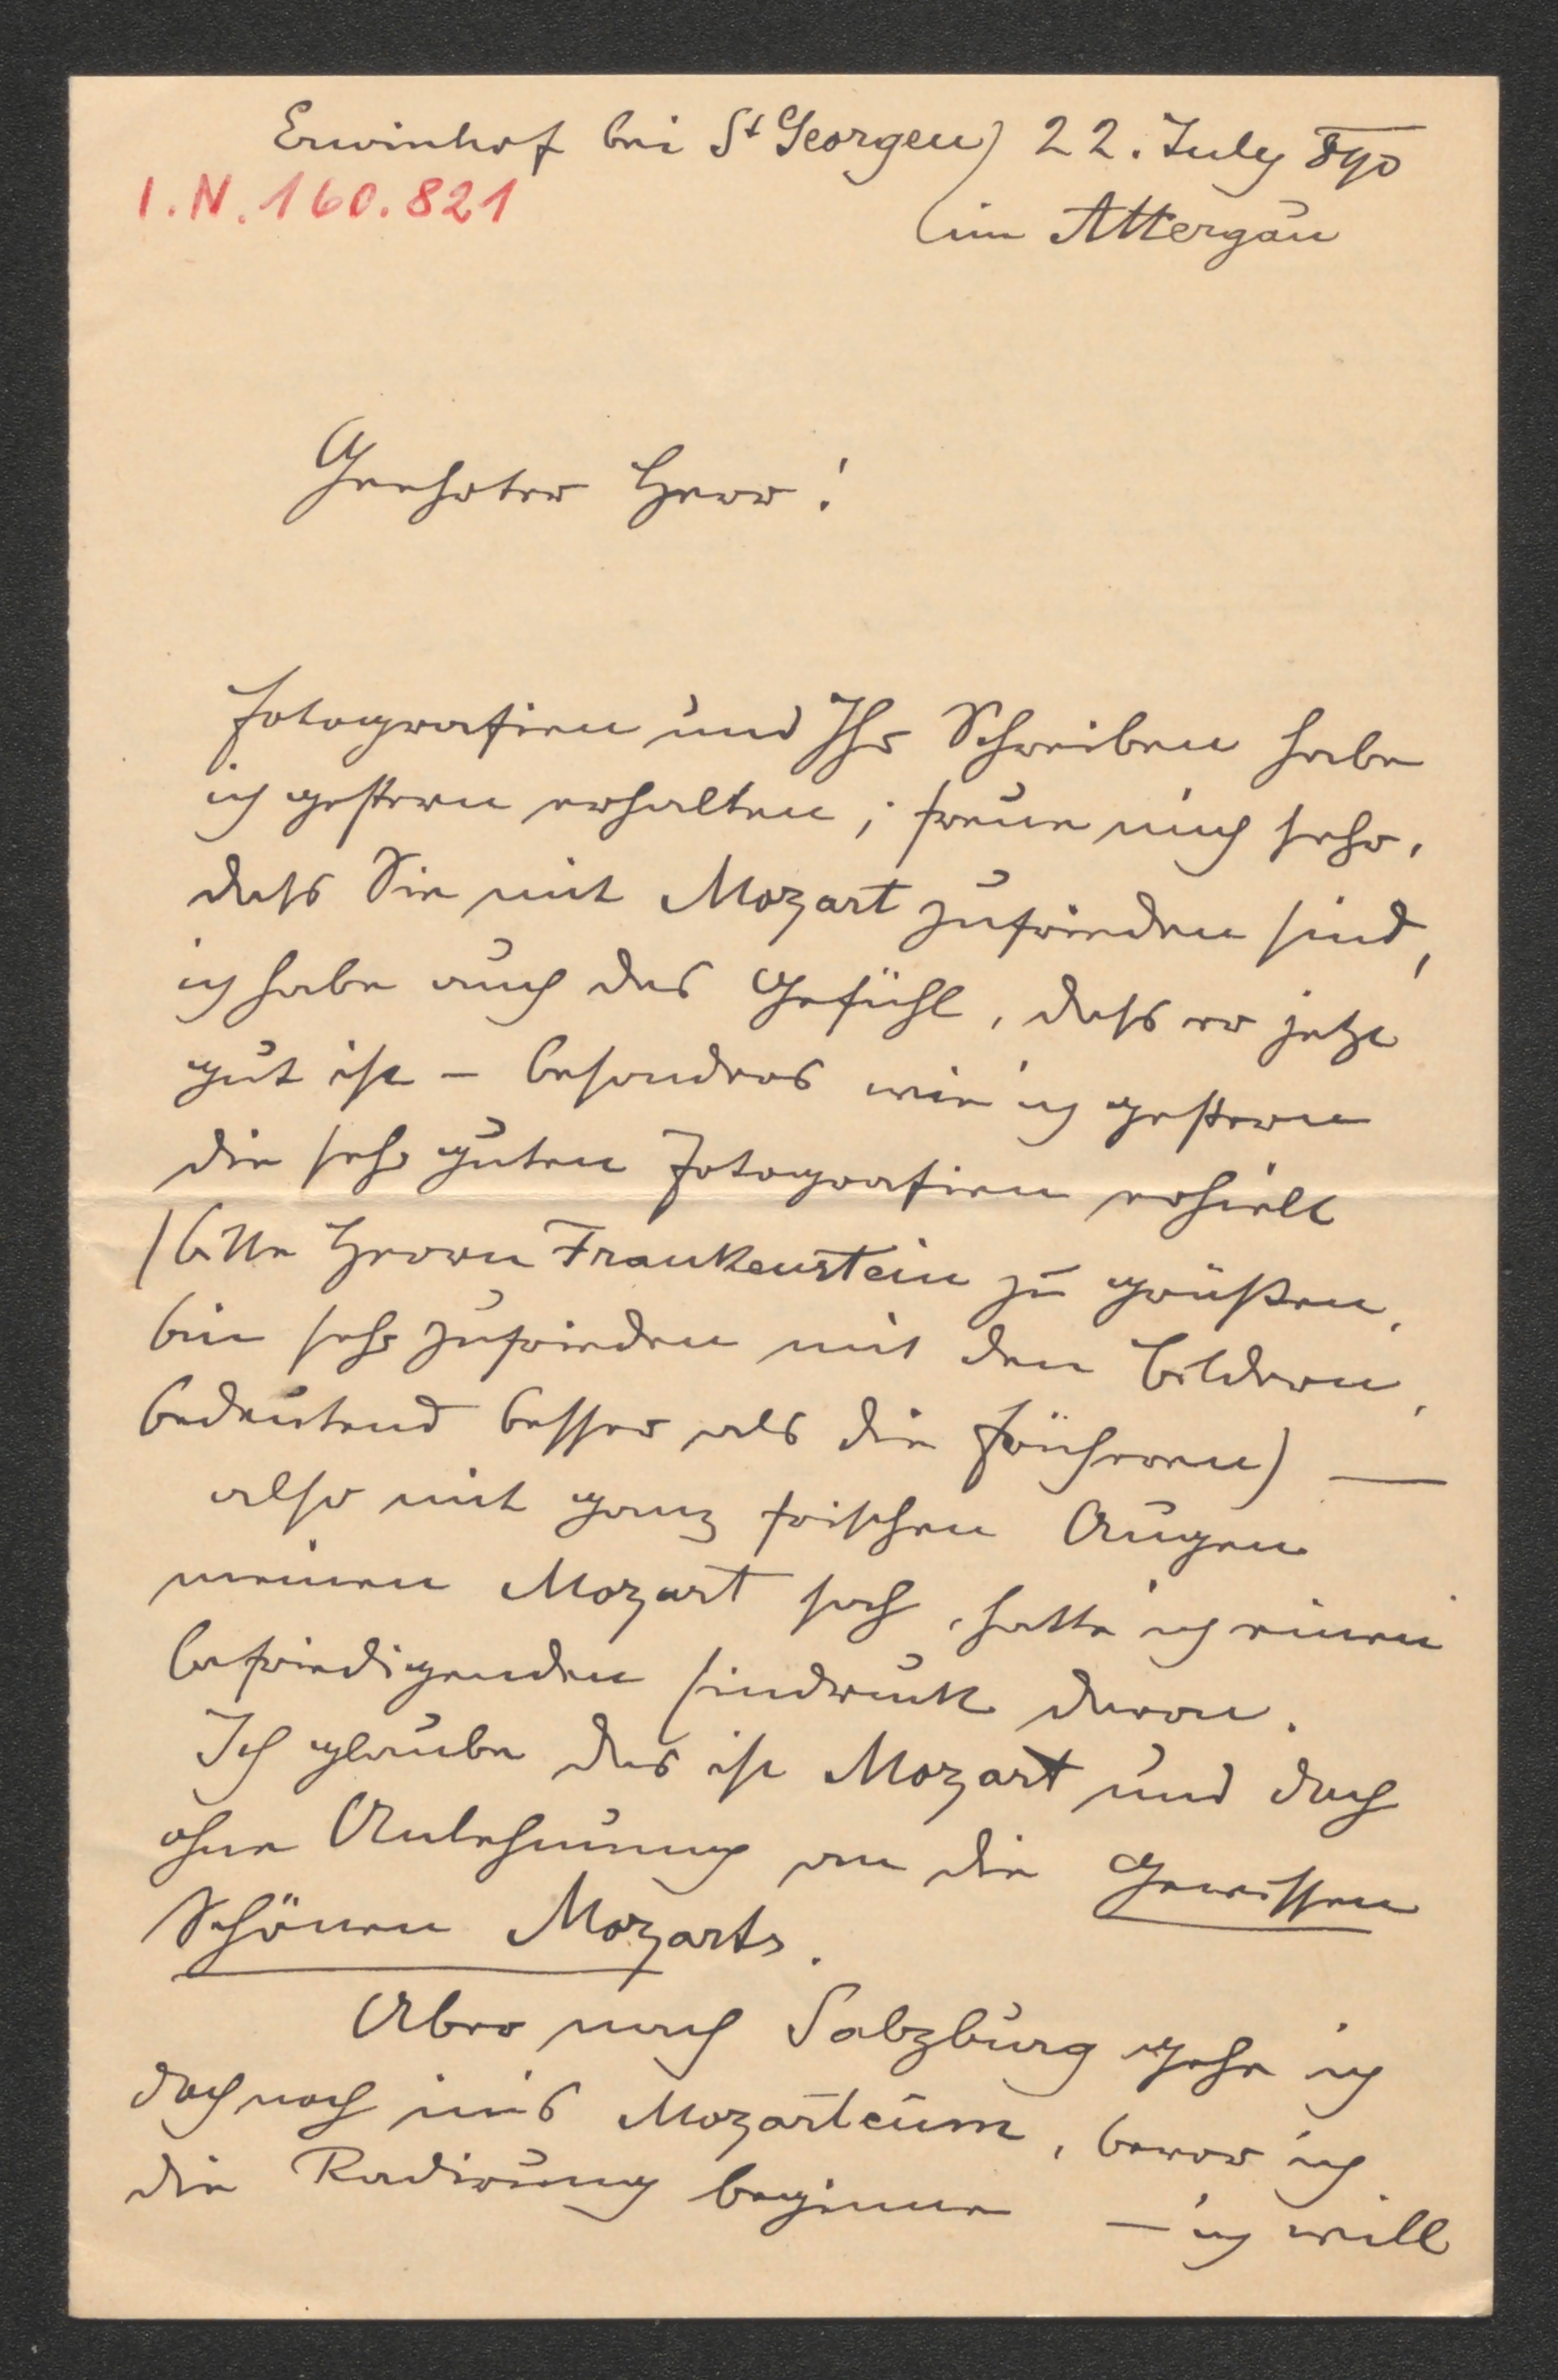 Erwinhof bei St Georgen) 22. July 890
I.N. 160.821
(im Attergau
Geehrter Herr!
Fotografien und Ihr Schreiben habe
ich gestern erhalten; freue mich sehr,
dass Sie mit Mozart zufrieden sind,
ich habe auch das Gefühl, dass er jetzt
gut ist – besonders wie ich gestern
die sehr guten Fotografien erhielt
(bitte Herrn Frankenstein zu grüßen,
bin sehr zufrieden mit den Bildern,
bedeutend besser als die früheren) —
also mit ganz frischen Augen
meinen Mozart sah, hatte ich einen
befriedigenden Eindruck davon.
Ich glaube das ist Mozart und doch
ohne Anlehnung an die gewissen
schönen Mozarts.
Aber nach Salzburg gehe ich
doch noch ins Mozarteum, bevor ich
die Radirung beginne – ich will